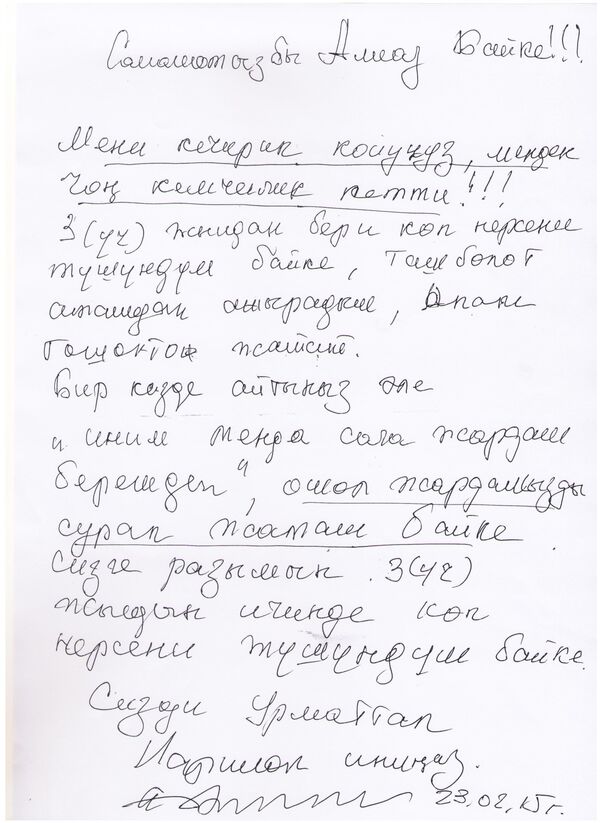 Саламатсызбы Алмаз Байке!!!
Мени кечирип коюңуз, менден
Чоң кемчилик кетти!!!
3(үч) жылдан бери көп нерсени
түшүндүм байке, Ташболот
атамдан ажырадым, Апам
төшөктө жатат.
Бир кезде айтыңыз эле
"иним менде сага жардам
берем деп", ошол жардамыңызды
сурап жатам байке.
Сизге разымын. 3(үч)
жылдын ичинде көп
нерсени түшүндүм байке.
Сизди Урматтап
Нариман иниңиз.
23.02.15г.